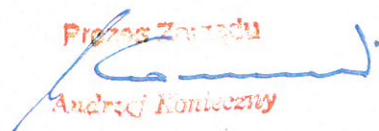 Prezes Zarządu
Andrzej Konieczny